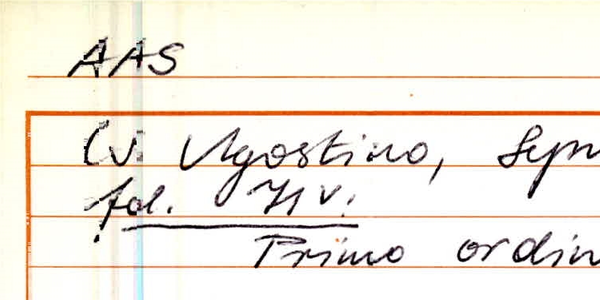 AAS
(v. Agostino, Sym
fol. 71 v.
Primo ordin